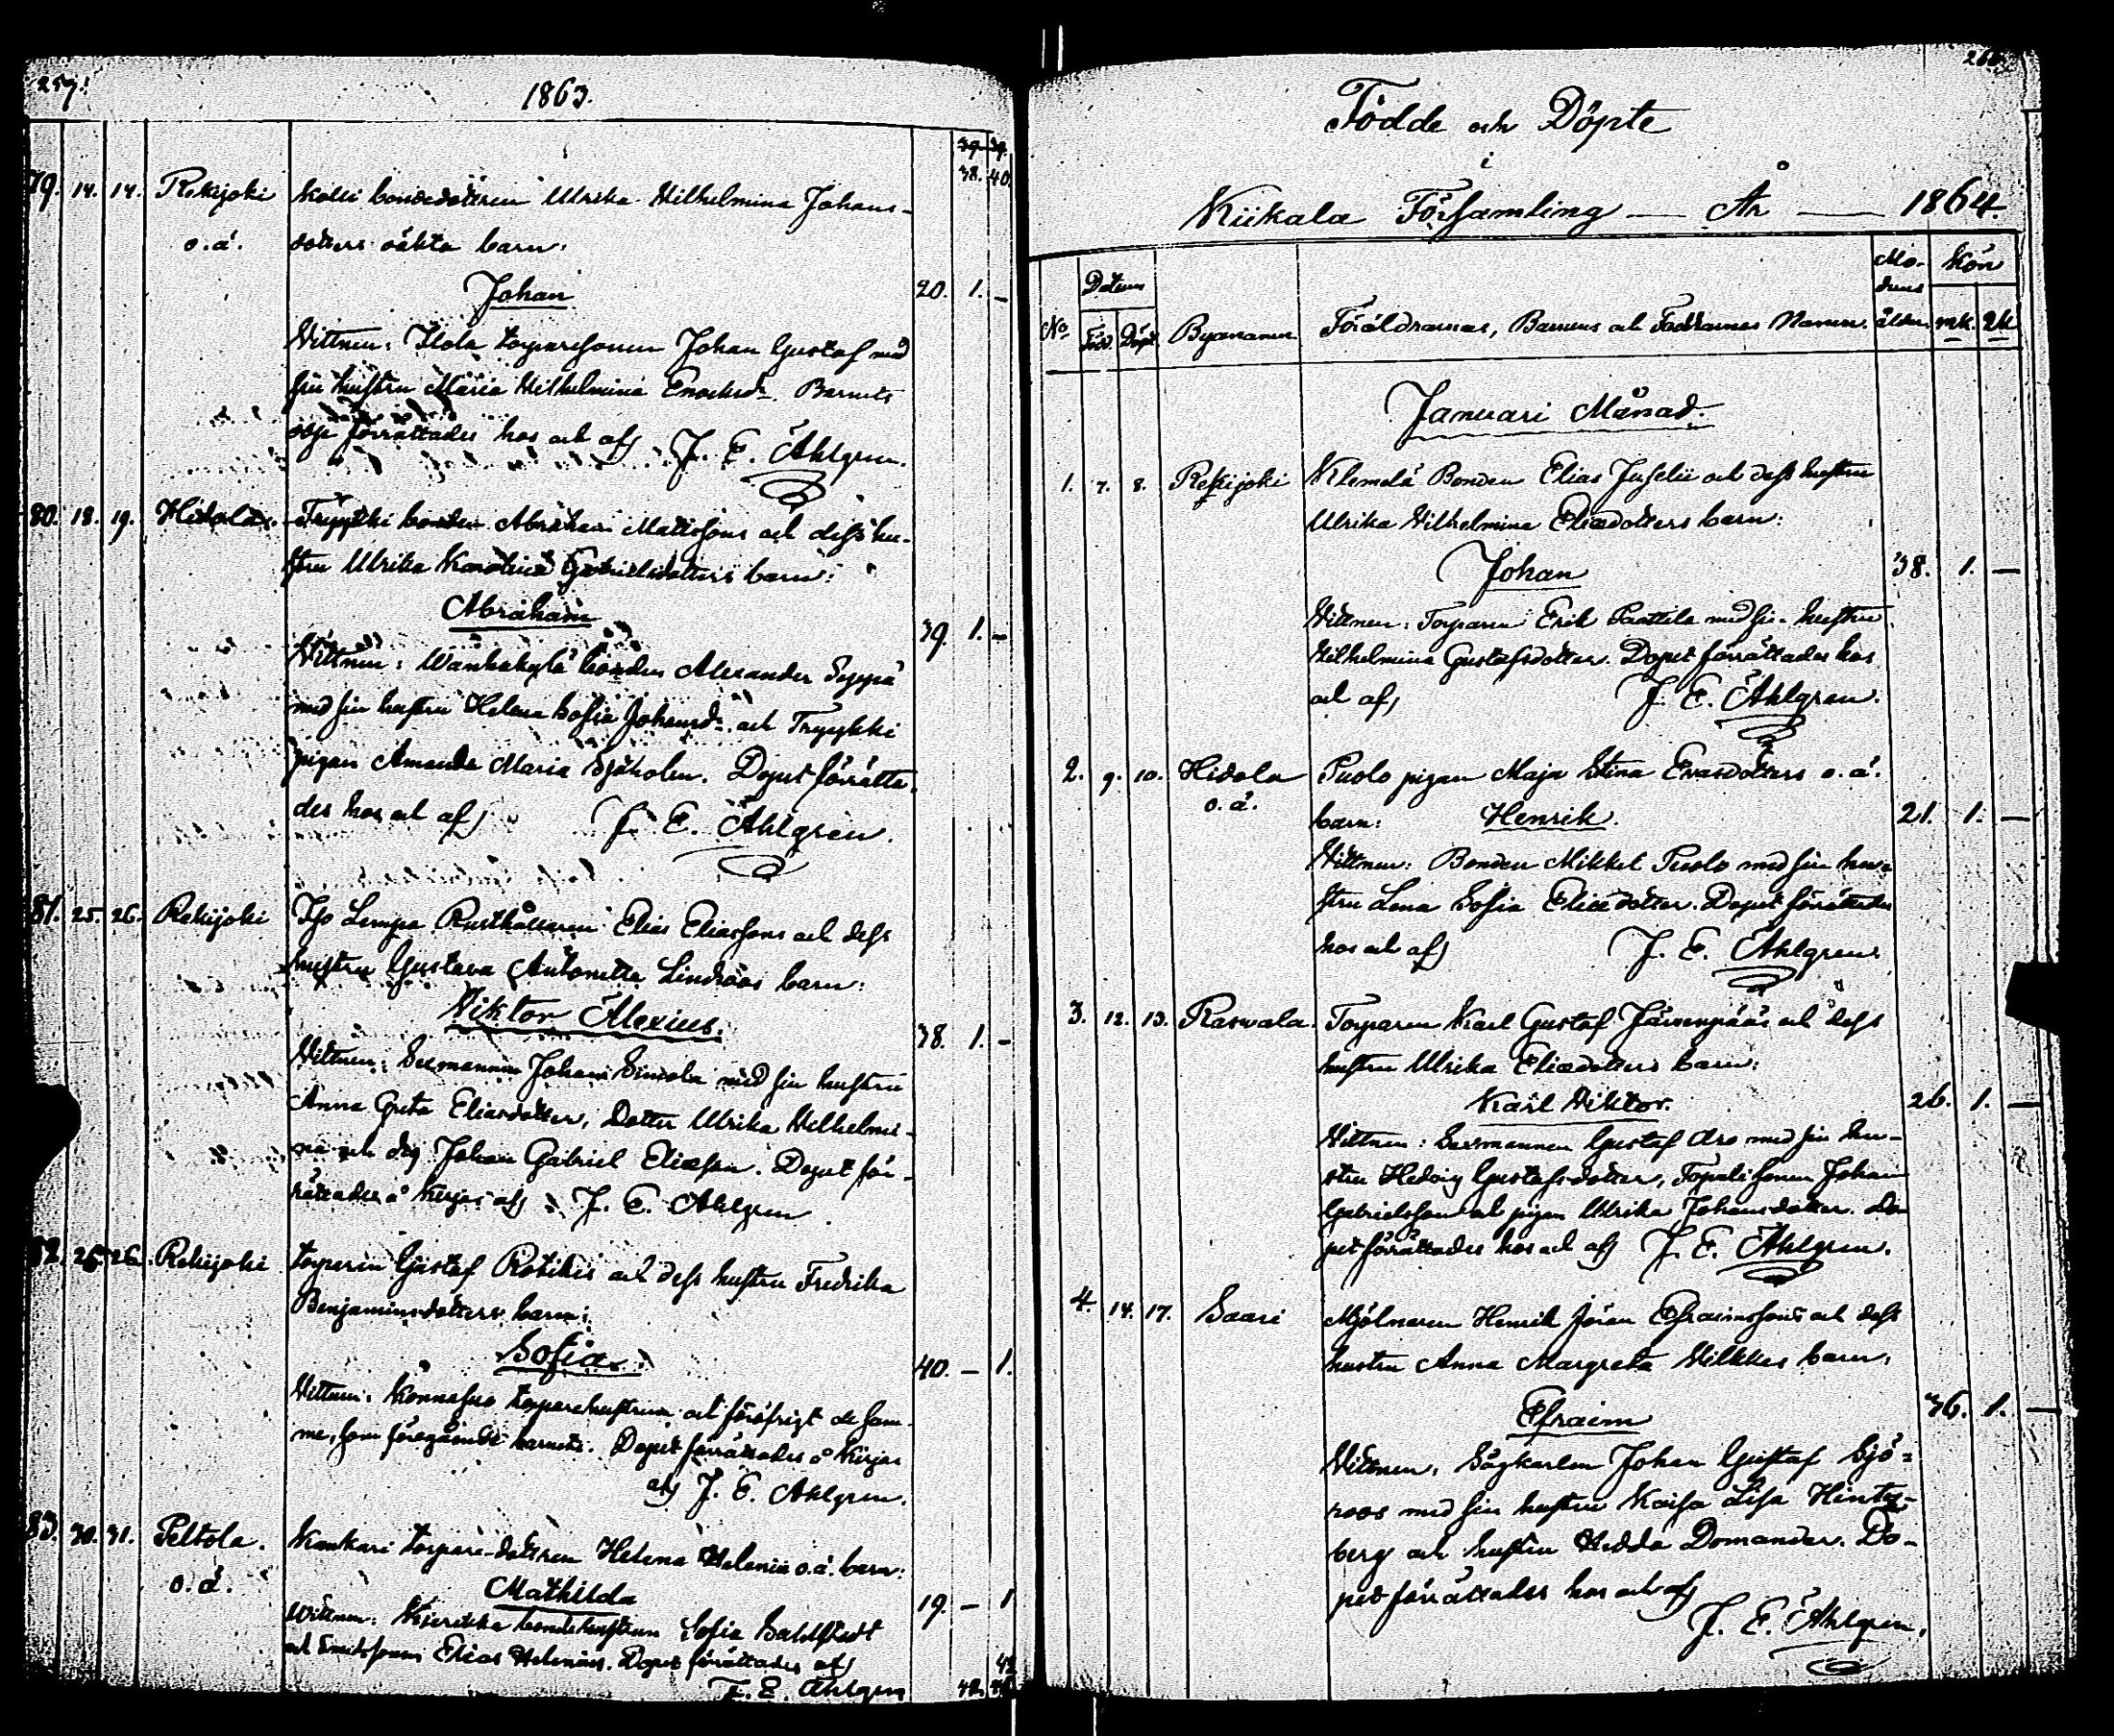 259.
1863.
39. 39.
38. 40.
79. 14. 14. Rekijoki Kolli bondedottren Ulrika Wilhelmina Johans-
o.ä. dotters oäkta barn:
Johan
20. 1. –
Wittnen: Ilola torparesonen Johan Gustaf med
sin hustru Maria Wilhelmina Enoksdr. Barnets
dop förrättades hos och af J. E. Åhlgren.
80. 18. 19. Hidola. Tryykki bonden Abraham Mattssons och dess hu-
stru Ulrika Karolina Gabrielsdotters barn:
Abraham
39. 1. –
Wittnen: Wanhakylä bonden Alexander Seppä
med sin hustru Helena Sofia Johansdr. och Tryykki
pigan Amanda Maria Sjöholm. Dopet förrätta-
des hos och af J. E. Åhlgren.
81. 25. 26. Rekijoki Iso Lempa Rusthållaren Elias Eliassons och dess
hustru Gustava Antonetta Lindroos barn:
Viktor Alexius.
38. 1. –
Wittnen: Sexmannen Johan Simola med sin hustru
Anna Greta Eliasdotter, Dotter Ulrika Wilhelmi-
na och drg Johan Gabriel Eliasson. Dopet för-
rättades å Kirjas af J. E. Åhlgren
82. 25. 26. Rekijoki torparen Gustaf Rotikis och dess hustru Fredrika
Benjaminsdotters barn:
Sofia.
40. – 1.
Wittnen: torparehustrun och föröfrigt de sam-
me, som föregående barnets. Dopet förrättades å Kirjas
af J. E. Åhlgren.
83. 30. 31. Peltola. Kankari torpare-dottren Helena Helenia o.ä. barn:
o.ä. Mathilda
19. – 1
Wittnen: bondehustrun Sofia Sahlstedt
och Elias Helenius. Dopet förrättades af
J. E. Åhlgren
42
42. 41.
260.
Födde och Döpte
i
Kiikala Församling — År — 1864.
No Datum Byanamn Föräldrarnas, Barnens och Faddrarnes Namn. Mo- Kön
drens
Född. Döpt ålder. mk. qk
Januari Månad.
1. 7. 8. Rekijoki Klemelä Bonden Elias Juselii och dess hustru
Ulrika Wilhelmina Eliædotters barn:
Johan
38. 1. —
Wittnen: Torparen Erik Paattila med sin hustru
Wilhelmina Gustafsdotter. Dopet förrättades hos
och af J. E. Åhlgren.
2. 9. 10. Hidola Puolo pigan Maja Stina Evasdotters o.ä.
o.ä. barn: Henrik.
21. 1. —
Wittnen: Bonden Mikkel Puolo med sin hu-
stru Lena Sofia Eliædotter. Dopet förrättades
hos och af J. E. Åhlgren.
3. 12. 13. Rasvala. Torparen Karl Gustaf Järvenpääs och dess
hustru Ulrika Eliædotters barn:
Karl Viktor.
26. 1. —
Wittnen: Sexmannen Gustaf Aro med sin hu-
stru Hedvig Gustafsdotter, Johan
Gabrielsson och pigan Ulrika Johansdotter. Do-
pet förrättades hos och af J. E. Åhlgren.
4. 14. 17. Saari Mjölnaren Henrik Jöran Efraimssons och dess
hustru Anna Margreta Wilkkes barn:
Efraim
36. 1. —
Wittnen: Sågkarlen Johan Gustaf Sjö-
roos med sin hustru Kaisa Lisa Hintz-
berg och hustru Hedda Domander. Do-
pet förrättades hos och af
J. E. Åhlgren.